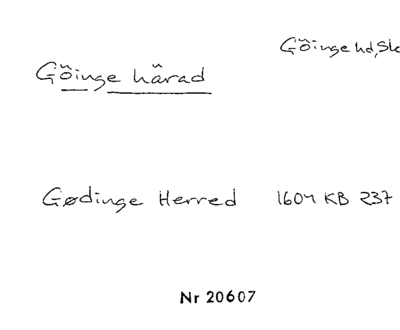 Göinge hd, Sk
Göinge härad
Gødinge Herred 1604 KB 237
Nr 20607